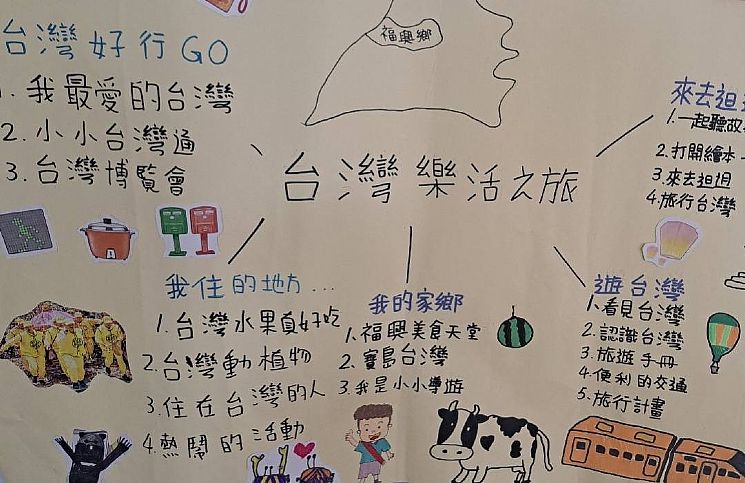 福興鄉
台灣樂活之旅
台灣好行GO
1. 我最愛的台灣
2. 小小台灣通
3. 台灣博覽會
來去迌迌
1. 一起聽故
2. 打開繪本
3. 來去迌迌
4. 旅行台灣
我住的地方...
1. 台灣水果真好吃
2. 台灣動植物
3. 住在台灣的人
4. 熱鬧的活動
我的家鄉
1. 福興美食天堂
2. 寶島台灣
3. 我是小小導遊
遊台灣
1. 看見台灣
2. 認識台灣
3. 旅遊手冊
4. 便利的交通
5. 旅行計畫